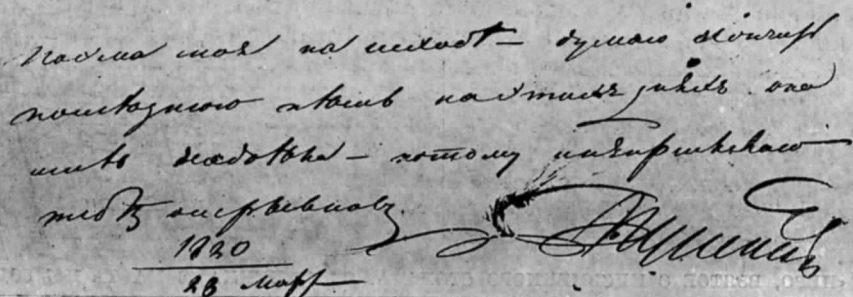 Поэма моя на исходѣ — думаю кончить
последнюю пѣснь на этихъ дняхъ. она
мнѣ надоѣла — потому
тебѣ отрывковъ.
1820
28 март
Пушкинъ